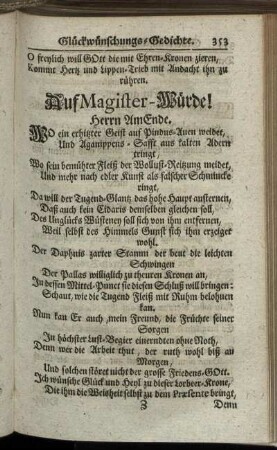 Glückwünschungs-Gedichte. 353
O freylich will GOtt die mit Ehren-Kronen zieren,
Kommt Hertz und Lippen-Trieb mit Andacht ihn zu
rühren.
Auf Magister-Würde!
Herrn AmEnde.
WO ein erhitzter Geist auf Pindus-Auen weidet,
Und Aganippens-Safft aus kalten Adern
tringt,
Wo sein bemührter Fleiß der Wollust-Reitzung meidet,
Und mehr nach edler Kunst als falscher Schmincke
ringt,
Da will der Tugend-Glantz das hohe Haupt austernen,
Daß auch kein Eldaris demselben gleichen soll,
Des Unglücks Wüsteney soll sich von ihm entfernen,
Weil selbst des Himmels Gunst sich ihm erzeiget
wohl.
Der Daphnis zarter Stamm der beut die leichten
Schwingen
Der Pallas williglich zu theuren Kronen an,
In dessen Mittel-Punct sie diesen Schluß will bringen:
Schaut, wie die Tugend Fleiß mit Ruhm belohnen
kan.
Nun kan Er auch, mein Freund, die Früchte seiner
Sorgen
In höchster Lust-Begier einerndten ohne Noth,
Denn wer die Arbeit thut, der ruth wohl biß an
Morgen,
Und solchen störet nicht der grosse Friedens-GOtt.
Ich wünsche Glück und Heyl zu dieser Lorbeer-Krone,
Die ihm die Weißheit selbst zu dem Præsente bringt,
Z Denn